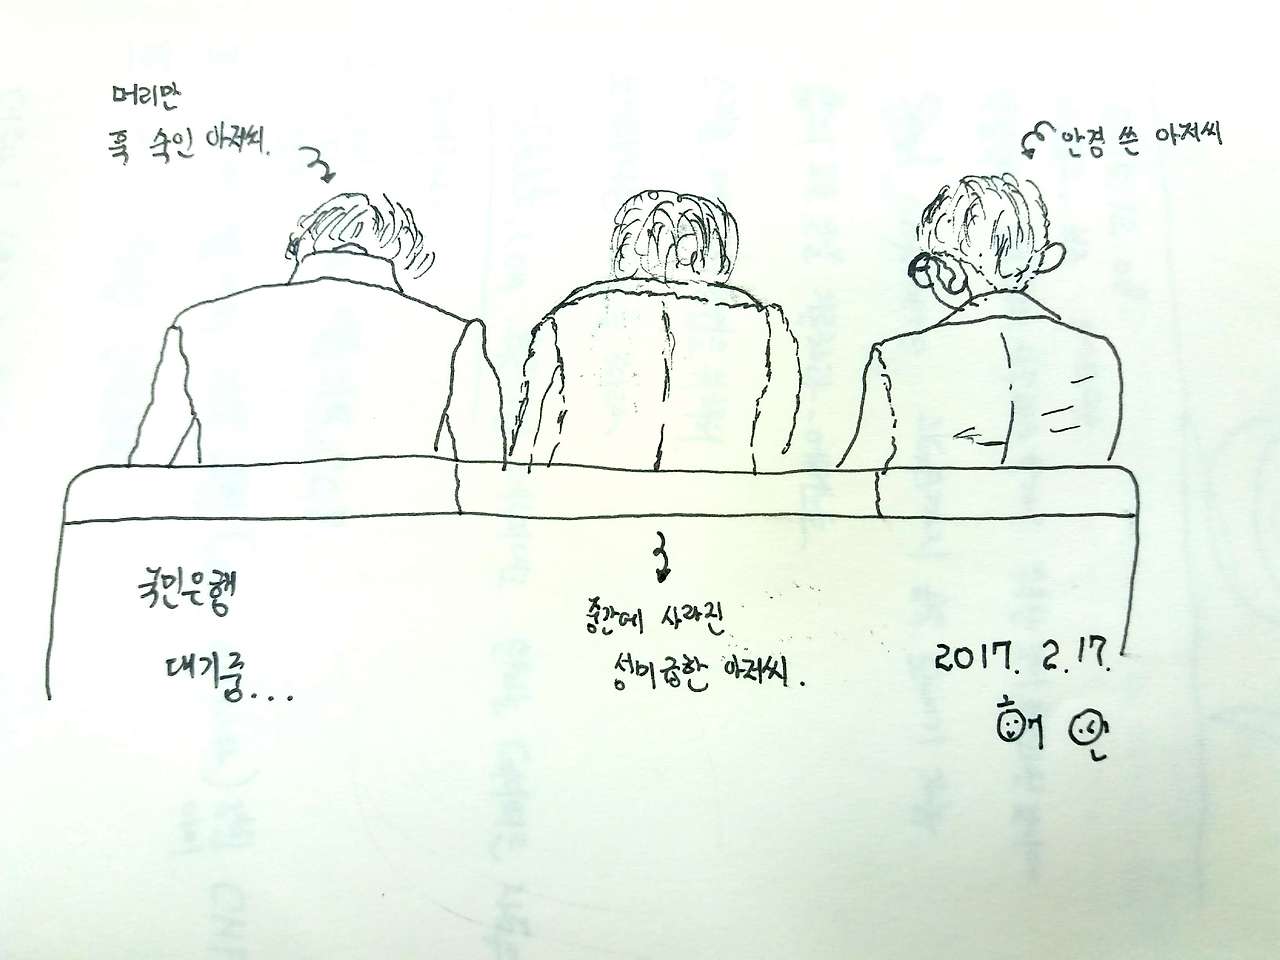 머리만
푹 숙인 아저씨.
안경 쓴 아저씨
국민은행
대기중...
중간에 사라진
성미급한 아저씨.
2017. 2.17.
혜안